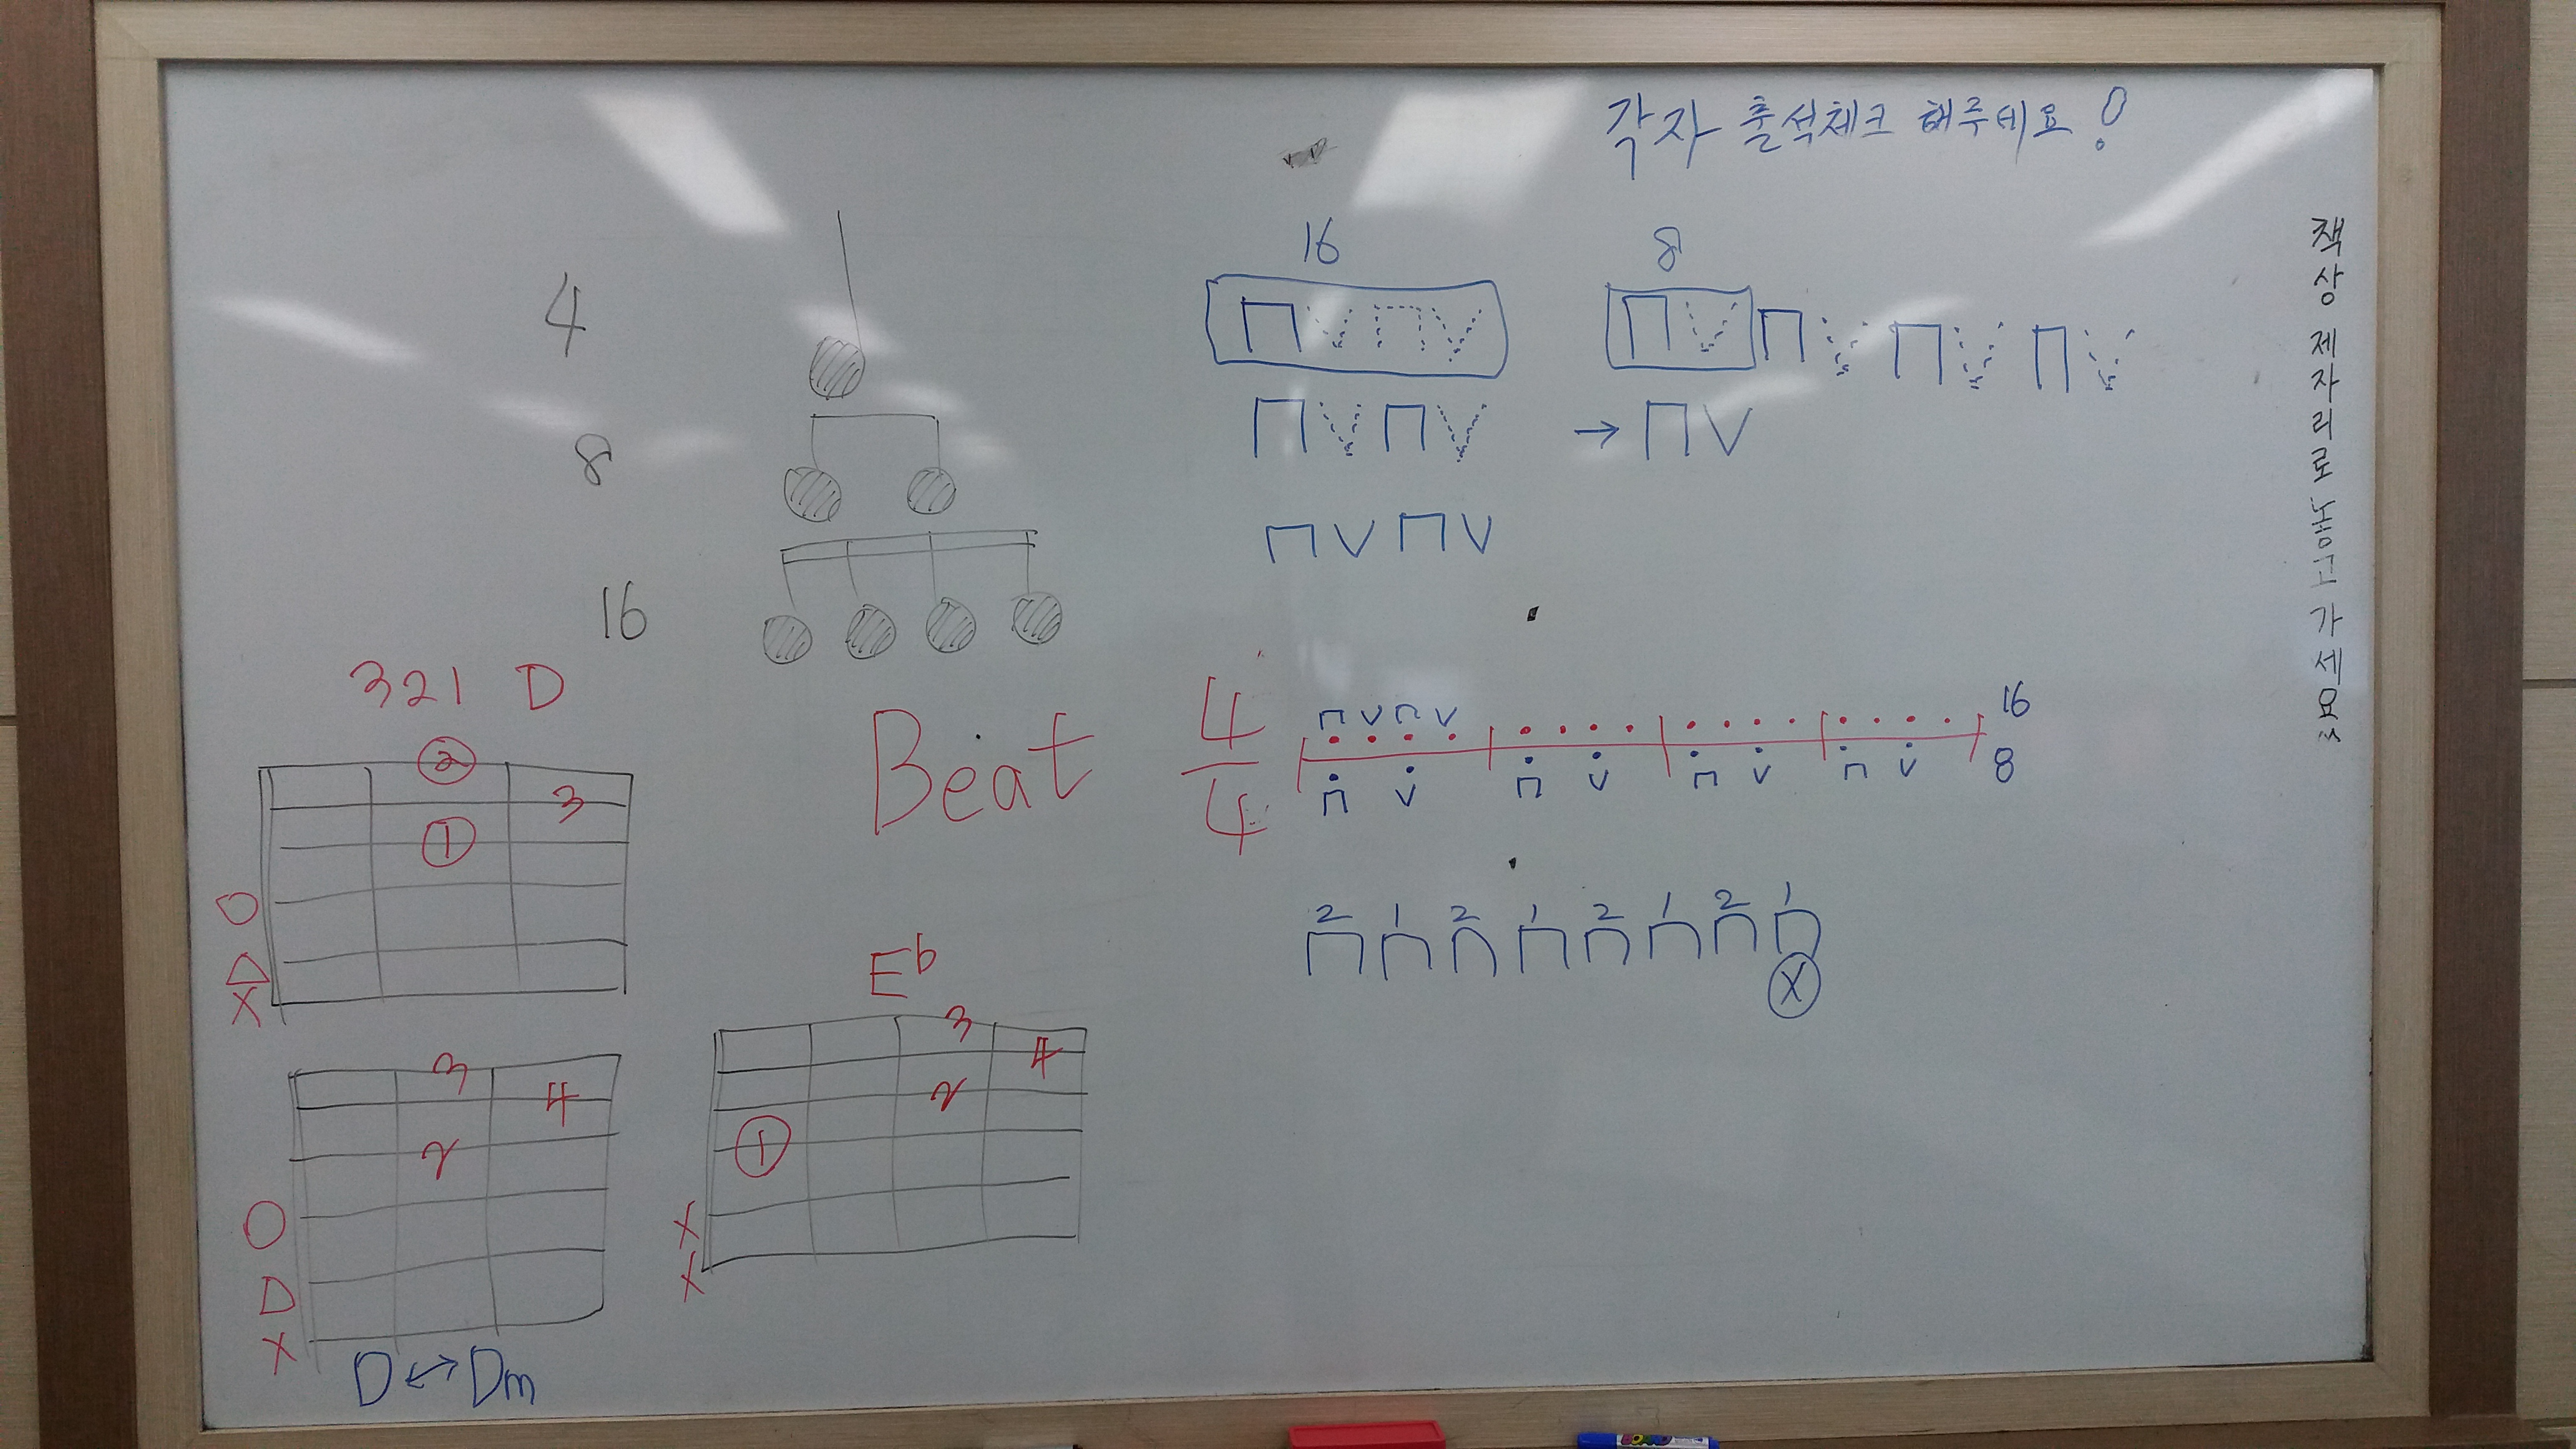 각자 출석체크 해주세요!
책상 제자리로 놓고 가세요
16 8
4
8
16
→
321 D
②
3
①
O
△
X
Beat 4/4
16
8
2 1 2 1 2 1 2 1
X
E♭
3
4
2
①
X
X
3
4
2
O
D
X
D ↔ Dm